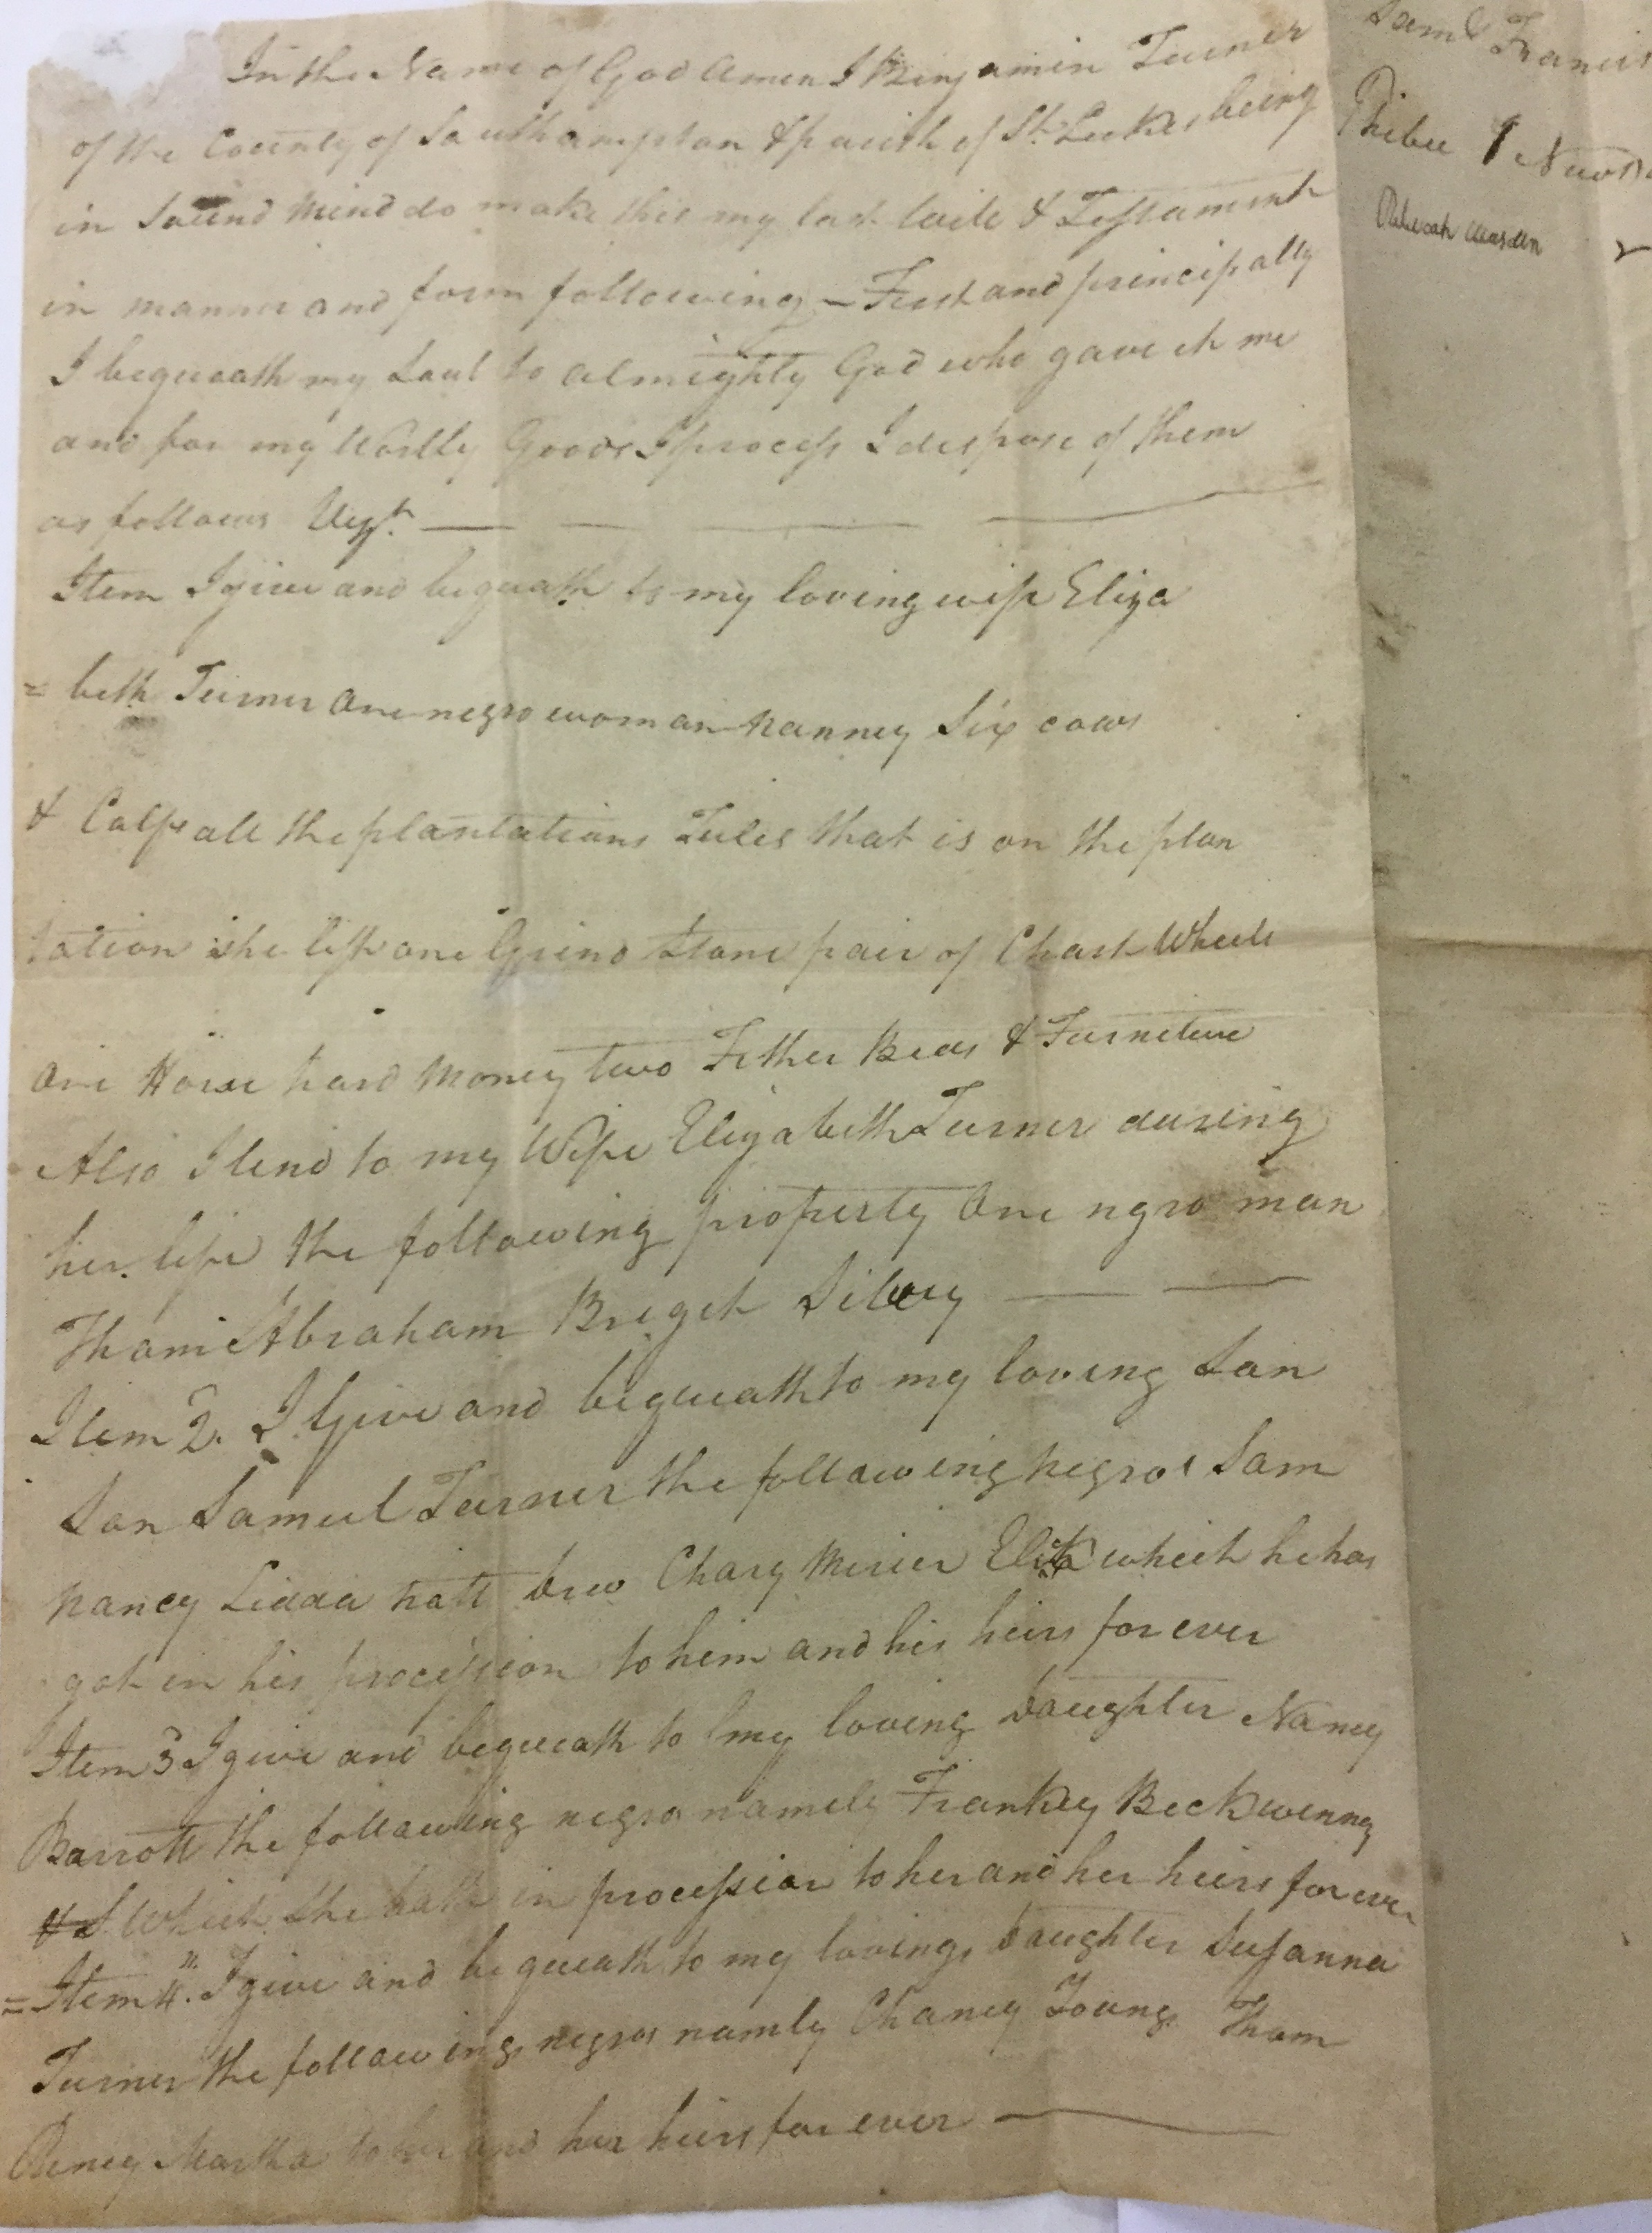 In the Name of God Amen I Benjamin Turner
of the County of Southampton & parish of St. Lukes being
in Sound Mind do make this my last Will & Testament
in manner and form following – First and principally
I bequeath my Soul to almighty God who gave it me
and for my Worlly Goods I process I dispose of them
as follows
Item I give and bequath to my loving wife Eliza
= beth Turner One negro woman Nanney Six cows
& Calfs all the plantations Tules that is on the plan
tation she left one Grind Stone pair of Chart Wheels
One Horse hard Money two Fether Beds & Furneture
Also I lend to my Wife Elizabeth Turner during
her life the following property One ngro man
Thom Abraham Briget
Item 2. I Give and bequeath to my loving Son
Son Samuel Turner the following negros Sam
Nancy Lidda Natt Drew Chary Miner which he has
got in his procession to him and his heirs for ever
Item 3 I give and bequeath to my loving Daughter Nancy
Barrott the following negros namele Frankey Beck Winney
& S Which She hath in procession to her and her heirs for ever
= Item 4. I give and bequeath to my loving Daughter Susanna
Turner the following negros namly Chaney Young Thom
Martha to her and her heirs for ever
Saml Francis